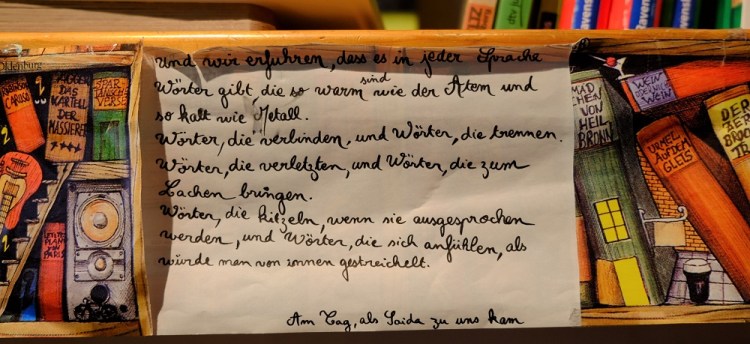 Oldenburg
SAGGEN
DAS
KARTELL
DER
MASSIERER
Und wir erfuhren, dass es in jeder Sprache
Wörter gibt, die so warm sind wie der Atem und
so kalt wie Metall.
Wörter, die verbinden, und Wörter, die trennen.
Wörter, die verletzten, und Wörter, die zum
Lachen bringen.
Wörter, die kitzeln, wenn sie ausgesprochen
werden, und Wörter, die sich anfühlen, als
würde man von innen gestreichelt.
Am Tag, als Saida zu uns kam
MÄD
CHEN
VON
HEIL
BRONN
WEIN
WEIN
URMEL
AUF DEM
GLEIS
DER